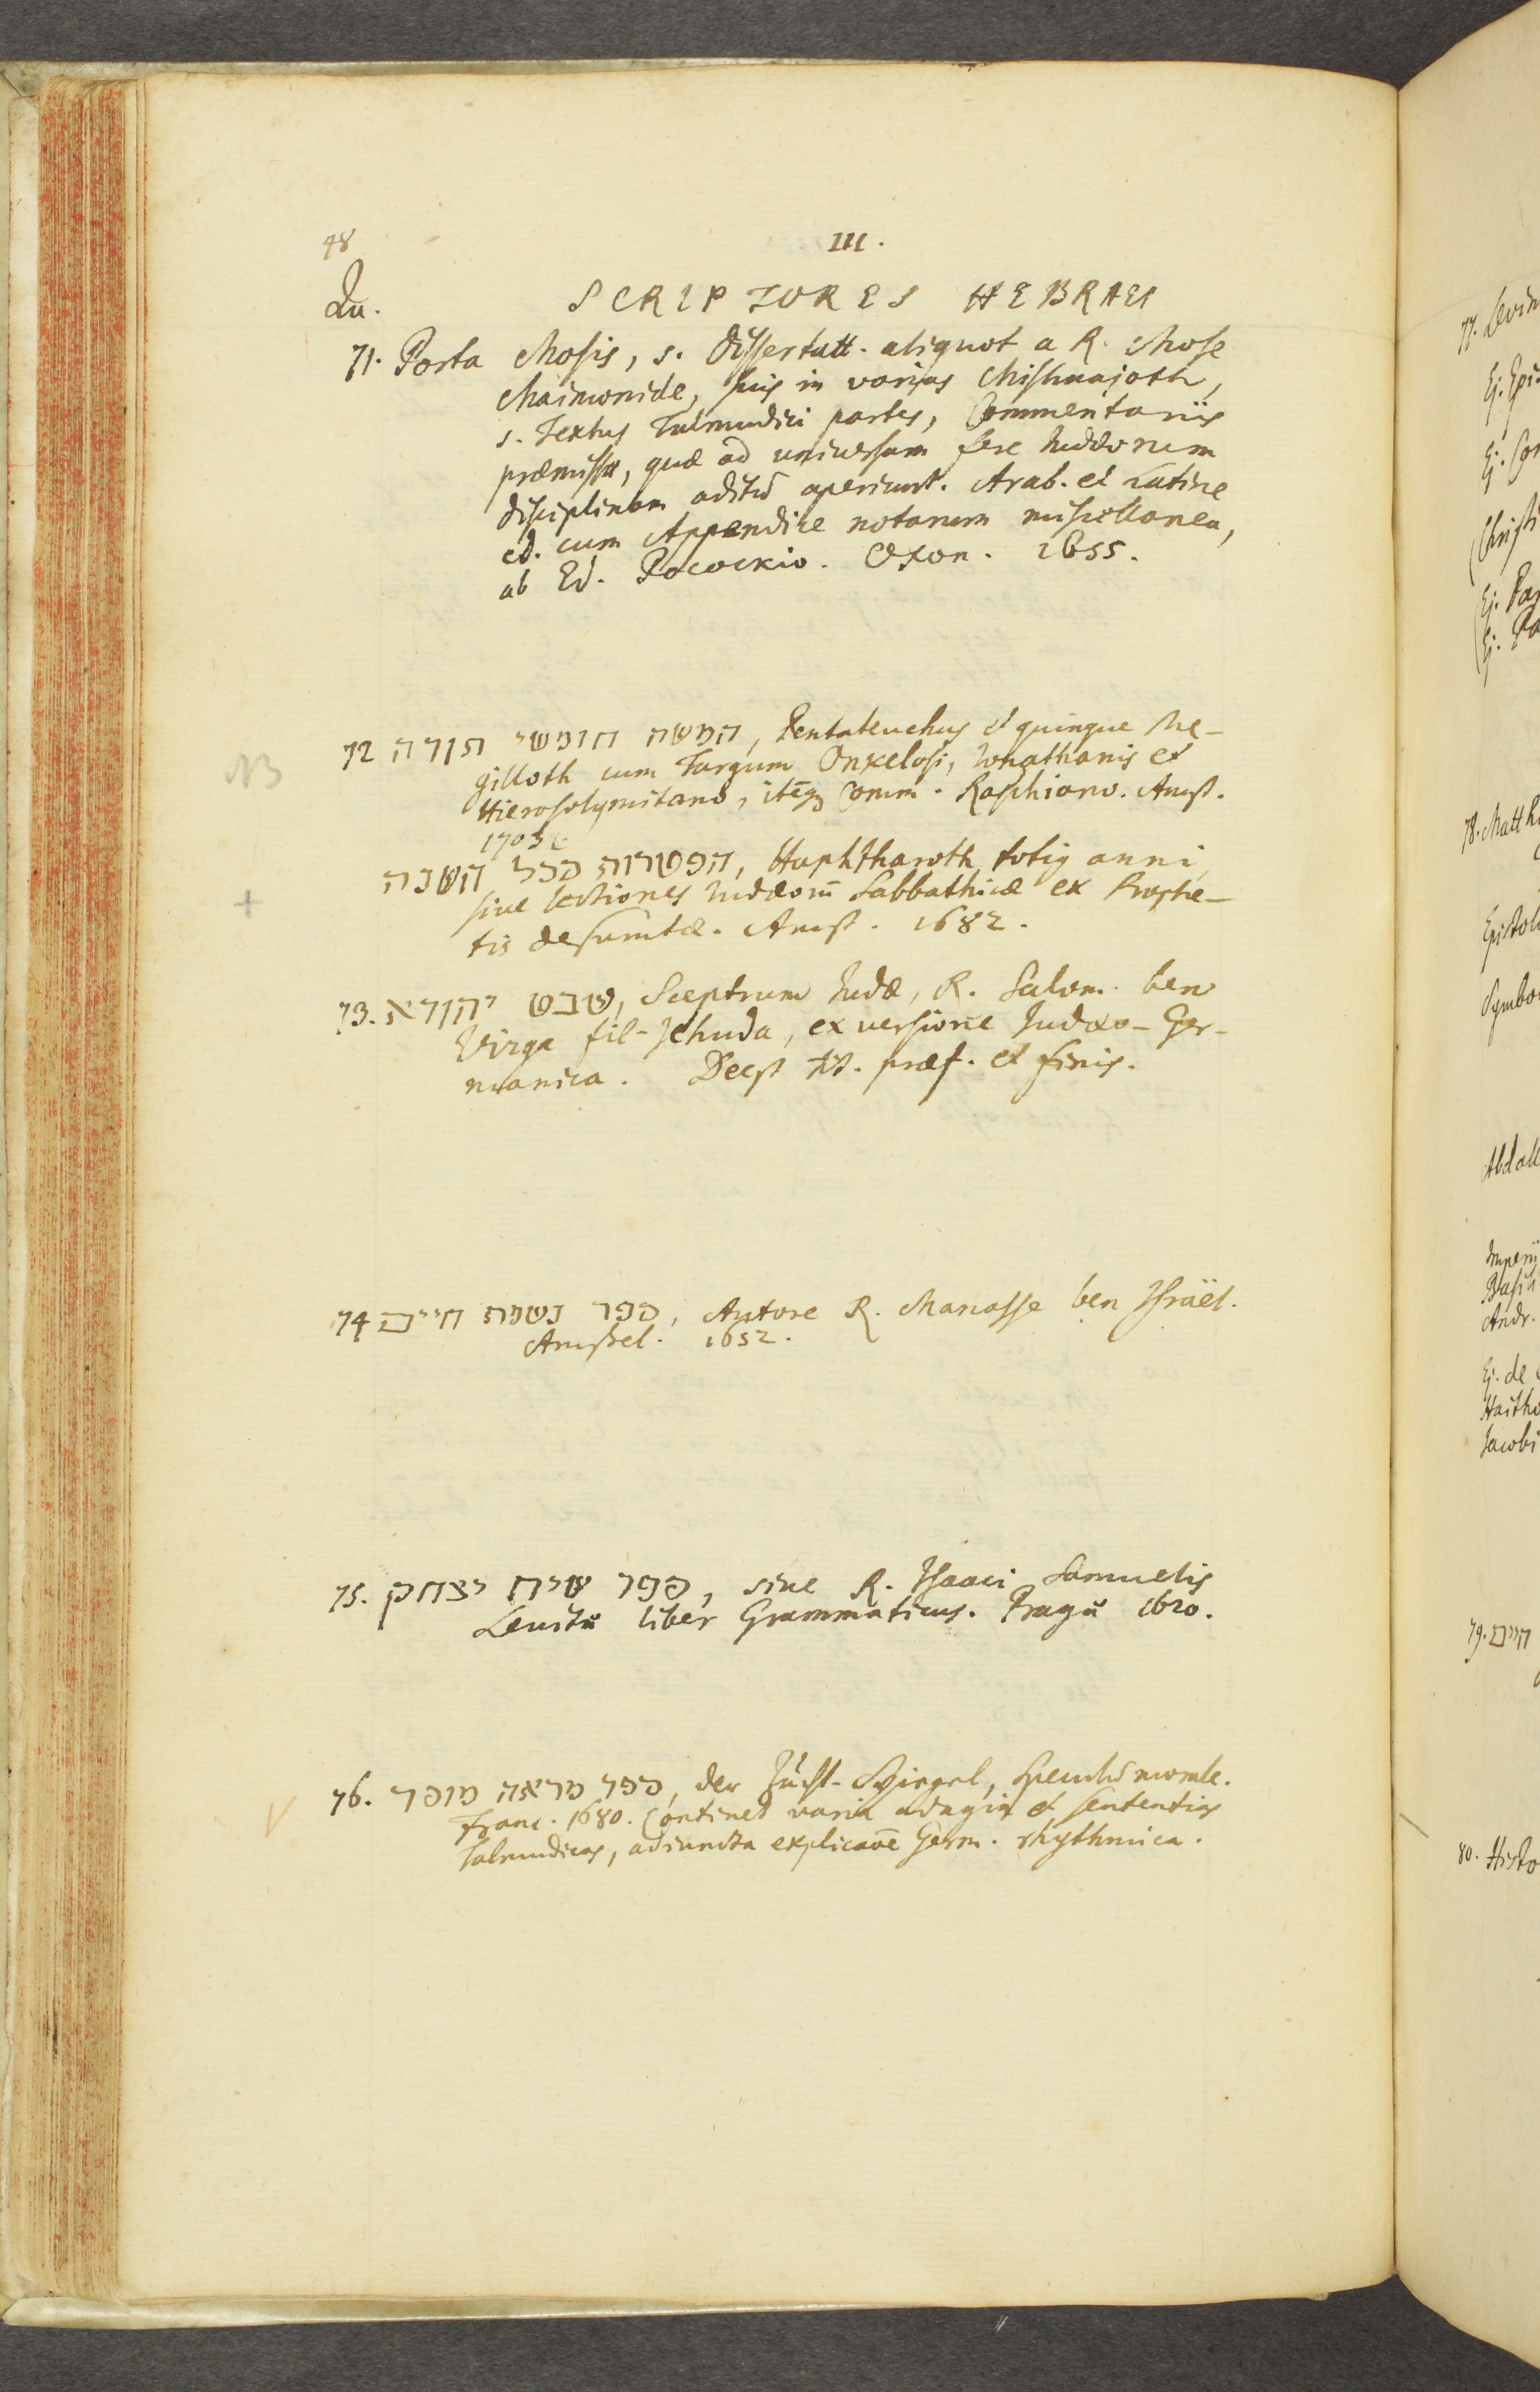 48
III.
Qu.
SCRIPTORES HEBRAEI
71. Porta Mosis, s. dissertatt. aliquot a R. Mose
Maimonide, suis in varias Mishnajoth,
s. textus Talmudici partes, Commentariis
præmissæ, quæ ad universam fere Judæorum
disciplinam aditū aperiunt. Arab. et Latine
ed. cum Appendice notarum miscellanea,
ab Ed. Pocockio. Oxon. 1655.
NB
72 חמשה חומשי תורה, Pentateuchus et quinque Me-
gilloth cum Targum Onkelosi, Jonathanis et
Hierosolymitano, itēq; Comm. Raschiano. Amst.
1703
+
הפטרות מכל השנה, Haphtharoth totius anni,
sive lectiones Judæorū Sabbathicæ ex Prophe-
tis desumtæ. Amst. 1682.
73. שבט יהודא, Sceptrum Judæ, R. Salom. ben
Virga fil. Jehuda, ex versione Judæo-Ger-
manica. Deest tit. præf. et finis.
74 ספר נשמת חיים, Autore R. Manasse ben Israël.
Amstel. 1652.
75. ספר שיח יצחק, sive R. Isaaci Samuelis
Levitæ liber Grammaticus. Pragæ 1620.
V
76. ספר מראה מוסר, der Zucht-Spiegel, Speculū morale.
Franc. 1680. Continet varia adagia et sententias
Talmudicas, adiuncta explicaōe Germ. rhythmica.
77. Levin
Ej. Epis
Ej. Co
Christi
Ej. Pa
Ej. Pa
78. Matth
Epistol
Symbo
Abdall
Imperii
Basil
Andr.
Ej. de
Haitho
Jacobi
79. חיים
80. Histo